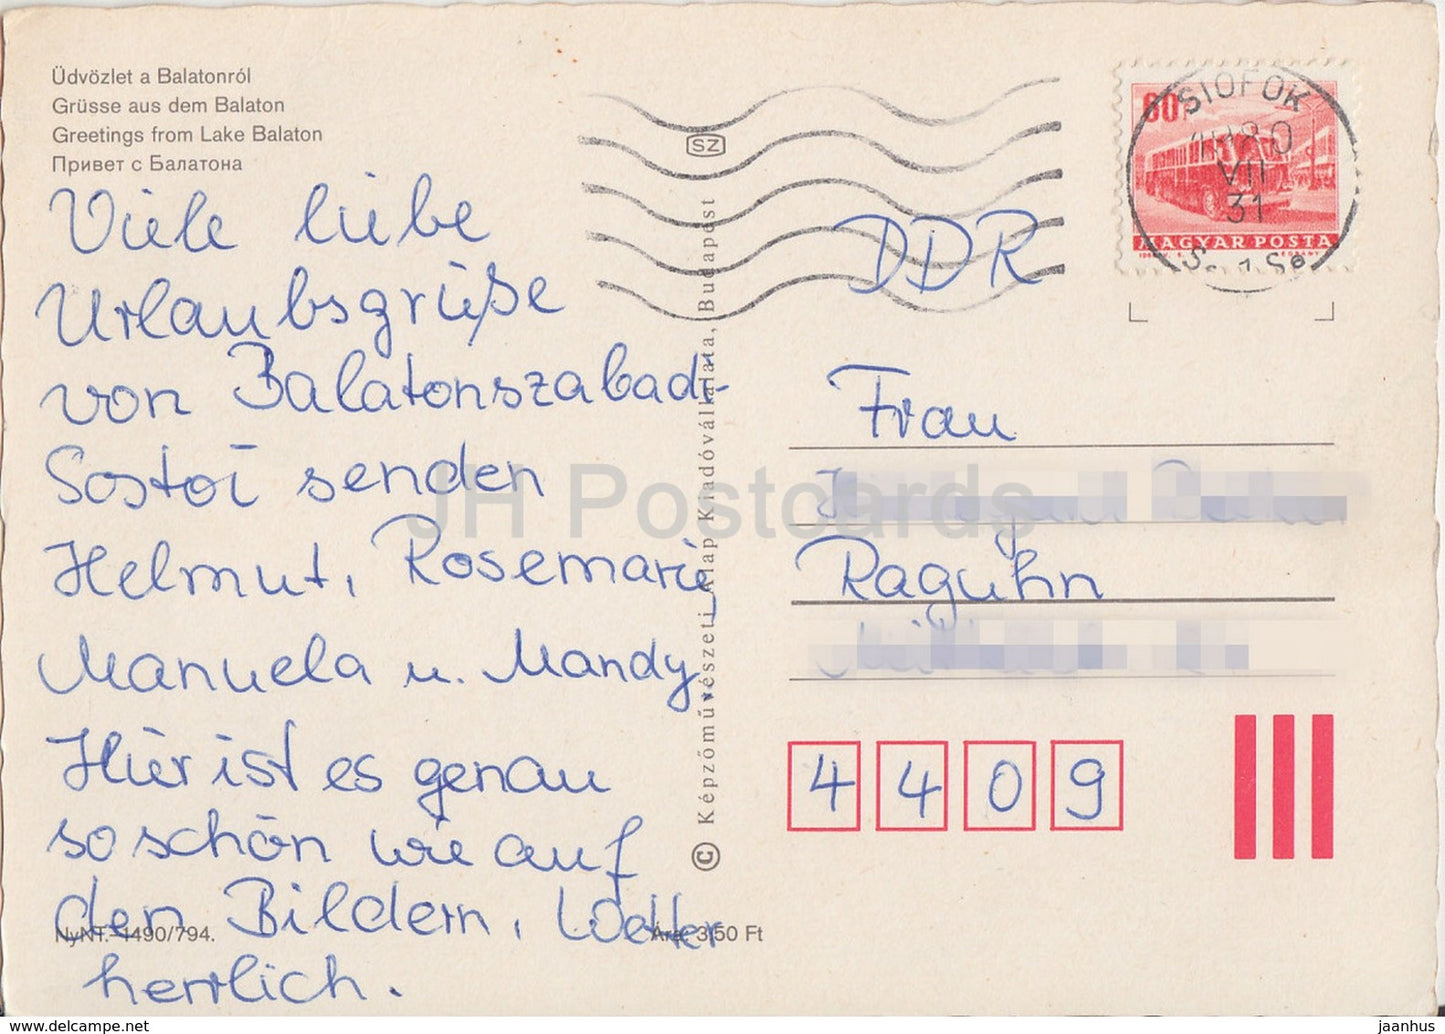 Üdvözlet a Balatonról
Grüsse aus dem Balaton
Greetings from Lake Balaton
Привет с Балатона
Viele liebe
Urlaubsgrüße
von Balatonszabadi-
Sostoi senden
Helmut, Rosemarie,
Manuela u. Mandy.
Hier ist es genau
so schön wie auf
den Bildern, Wetter
herrlich.
NyNT.-1490/794.
Ára: 3,50 Ft
SZ
© Képzőművészeti Alap Kiadóvállalata, Budapest
60f
MAGYAR POSTA
SIOFOK
80
VII
31
DDR
Frau
Raguhn
4409
JH Postcards
jaanhus — www.delcampe.net